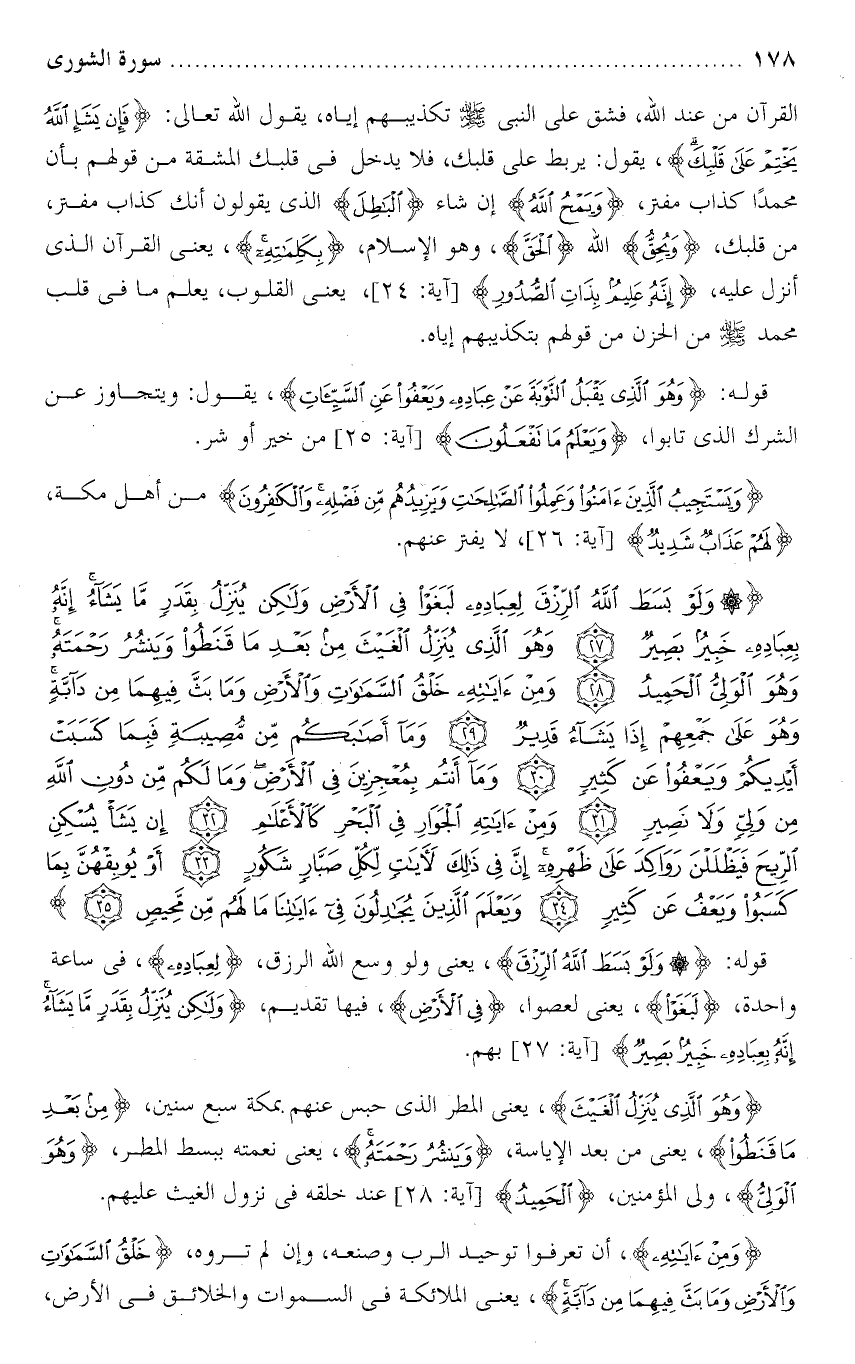 ١٧٨ ................................................................ سورة الشورى
القرآن من عند الله، فشق على النبى ﷺ تكذيبهم إياه، يقول الله تعالى: ﴿فَإِن يَشَإِ ٱللَّهُ
يَخْتِمْ عَلَىٰ قَلْبِكَۗ﴾، يقول: يربط على قلبك، فلا يدخل فى قلبك المشقة من قولهم بأن
محمدًا كذاب مفتر، ﴿وَيَمْحُ ٱللَّهُ﴾ إن شاء ﴿ٱلْبَٰطِلَ﴾ الذى يقولون أنك كذاب مفتر،
من قلبك، ﴿وَيُحِقُّ﴾ الله ﴿ٱلْحَقَّ﴾، وهو الإسلام، ﴿بِكَلِمَٰتِهِۦٓۚ﴾، يعنى القرآن الذى
أنزل عليه، ﴿إِنَّهُۥ عَلِيمٌۢ بِذَاتِ ٱلصُّدُورِ﴾ [آية: ٢٤]، يعنى القلوب، يعلم ما فى قلب
محمد ﷺ من الحزن من قولهم بتكذيبهم إياه.
قوله: ﴿وَهُوَ ٱلَّذِى يَقْبَلُ ٱلتَّوْبَةَ عَنْ عِبَادِهِۦ وَيَعْفُوا۟ عَنِ ٱلسَّيِّـَٔاتِ﴾، يقول: ويتجاوز عن
الشرك الذى تابوا، ﴿وَيَعْلَمُ مَا تَفْعَلُونَ﴾ [آية: ٢٥] من خير أو شر.
﴿وَيَسْتَجِيبُ ٱلَّذِينَ ءَامَنُوا۟ وَعَمِلُوا۟ ٱلصَّٰلِحَٰتِ وَيَزِيدُهُم مِّن فَضْلِهِۦۚ وَٱلْكَٰفِرُونَ﴾ من أهل مكة،
﴿لَهُمْ عَذَابٌ شَدِيدٌ﴾ [آية: ٢٦]، لا يفتر عنهم.
﴿۞ وَلَوْ بَسَطَ ٱللَّهُ ٱلرِّزْقَ لِعِبَادِهِۦ لَبَغَوْا۟ فِى ٱلْأَرْضِ وَلَٰكِن يُنَزِّلُ بِقَدَرٍ مَّا يَشَآءُۚ إِنَّهُۥ
بِعِبَادِهِۦ خَبِيرٌۢ بَصِيرٌ ٢٧ وَهُوَ ٱلَّذِى يُنَزِّلُ ٱلْغَيْثَ مِنۢ بَعْدِ مَا قَنَطُوا۟ وَيَنشُرُ رَحْمَتَهُۥۚ
وَهُوَ ٱلْوَلِىُّ ٱلْحَمِيدُ ٢٨ وَمِنْ ءَايَٰتِهِۦ خَلْقُ ٱلسَّمَٰوَٰتِ وَٱلْأَرْضِ وَمَا بَثَّ فِيهِمَا مِن دَآبَّةٍۚ
وَهُوَ عَلَىٰ جَمْعِهِمْ إِذَا يَشَآءُ قَدِيرٌ ٢٩ وَمَآ أَصَٰبَكُم مِّن مُّصِيبَةٍ فَبِمَا كَسَبَتْ
أَيْدِيكُمْ وَيَعْفُوا۟ عَن كَثِيرٍ ٣٠ وَمَآ أَنتُم بِمُعْجِزِينَ فِى ٱلْأَرْضِۖ وَمَا لَكُم مِّن دُونِ ٱللَّهِ
مِن وَلِىٍّ وَلَا نَصِيرٍ ٣١ وَمِنْ ءَايَٰتِهِ ٱلْجَوَارِ فِى ٱلْبَحْرِ كَٱلْأَعْلَٰمِ ٣٢ إِن يَشَأْ يُسْكِنِ
ٱلرِّيحَ فَيَظْلَلْنَ رَوَاكِدَ عَلَىٰ ظَهْرِهِۦٓۚ إِنَّ فِى ذَٰلِكَ لَءَايَٰتٍ لِّكُلِّ صَبَّارٍ شَكُورٍ ٣٣ أَوْ يُوبِقْهُنَّ بِمَا
كَسَبُوا۟ وَيَعْفُ عَن كَثِيرٍ ٣٤ وَيَعْلَمَ ٱلَّذِينَ يُجَٰدِلُونَ فِىٓ ءَايَٰتِنَا مَا لَهُم مِّن مَّحِيصٍ ٣٥﴾
قوله: ﴿۞ وَلَوْ بَسَطَ ٱللَّهُ ٱلرِّزْقَ﴾، يعنى ولو وسع الله الرزق، ﴿لِعِبَادِهِۦ﴾، فى ساعة
واحدة، ﴿لَبَغَوْا۟﴾، يعنى لعصوا، ﴿فِى ٱلْأَرْضِ﴾، فيها تقديم، ﴿وَلَٰكِن يُنَزِّلُ بِقَدَرٍ مَّا يَشَآءُۚ
إِنَّهُۥ بِعِبَادِهِۦ خَبِيرٌۢ بَصِيرٌ﴾ [آية: ٢٧] بهم.
﴿وَهُوَ ٱلَّذِى يُنَزِّلُ ٱلْغَيْثَ﴾، يعنى المطر الذى حبس عنهم بمكة سبع سنين، ﴿مِنۢ بَعْدِ
مَا قَنَطُوا۟﴾، يعنى من بعد الإياسة، ﴿وَيَنشُرُ رَحْمَتَهُۥۚ﴾، يعنى نعمته ببسط المطر، ﴿وَهُوَ
ٱلْوَلِىُّ﴾، ولى المؤمنين، ﴿ٱلْحَمِيدُ﴾ [آية: ٢٨] عند خلقه فى نزول الغيث عليهم.
﴿وَمِنْ ءَايَٰتِهِۦ﴾، أن تعرفوا توحيد الرب وصنعه، وإن لم تروه، ﴿خَلْقُ ٱلسَّمَٰوَٰتِ
وَٱلْأَرْضِ وَمَا بَثَّ فِيهِمَا مِن دَآبَّةٍۚ﴾، يعنى الملائكة فى السموات والخلائق فى الأرض،